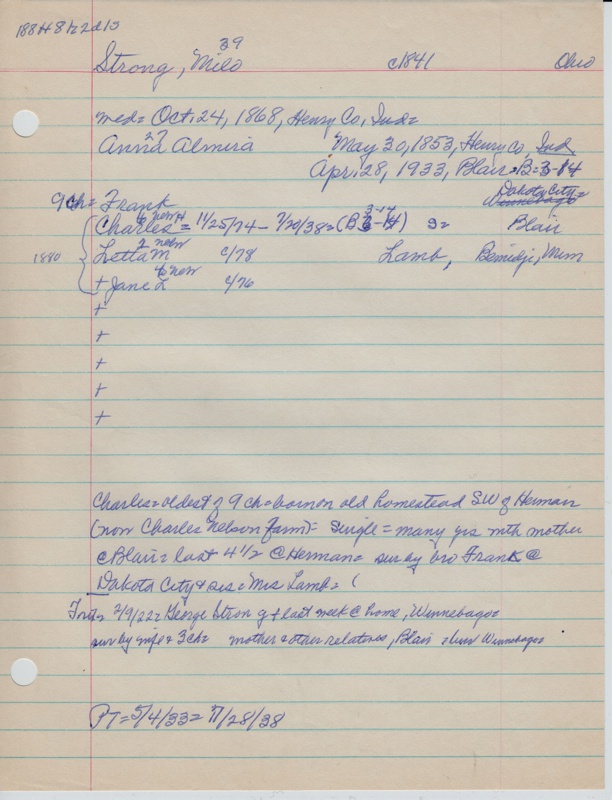 188H8h2d15
39
Strong, Milo c1841 Ohio
med= Oct. 24, 1868, Henry Co, Ind=
27
Anna Almira May 30, 1853, Henry Co, Ind
Apr. 28, 1933, Blair=B=3-14
9 ch= Frank Dakota City=
Winnebago
6 new H 3-14
Charles = 11/25/74 - 7/20/38=(B ) s= Blair
2 new
1880 Letta M c/78 Lamb, Bemidji, Minn
4 new
+ Jane L c/76
+
+
+
+
+
Charles=oldest of 9 ch=born on old homestead SW of Herman
(now Charles Nelson farm)= single = many yrs with mother
@ Blair= last 4 1/2 @ Herman= sur by bro Frank @
Dakota City & sis= Mrs Lamb= (
2/9/22= George Strong + last week @ home, Winnebago=
sur by wife & 3 ch= mother & other relatives, Blair = Winnebago=
PT=5/4/33= 7/28/38